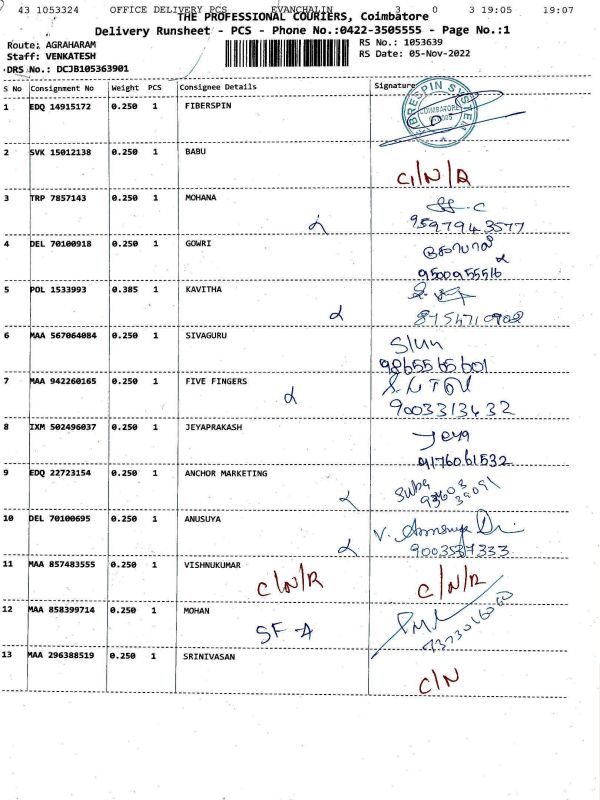 43 1053324 OFFICE DELIVERY PCS EVANCHALIN 3 0 3 19:05 19:07
THE PROFESSIONAL COURIERS, Coimbatore
Delivery Runsheet - PCS - Phone No.:0422-3505555 - Page No.:1
Route: AGRAHARAM RS No.: 1053639
Staff: VENKATESH RS Date: 05-Nov-2022
DRS No.: DCJB105363901
S No Consignment No Weight PCS Consignee Details Signature
1 EDQ 14915172 0.250 1 FIBERSPIN
COIMBATORE
2 SVK 15012138 0.250 1 BABU
C/N/R
3 TRP 7857143 0.250 1 MOHANA
9597943577
4 DEL 70100918 0.250 1 GOWRI
9500955516
5 POL 1533993 0.385 1 KAVITHA
6 MAA 567064084 0.250 1 SIVAGURU
9865565601
7 MAA 942260165 0.250 1 FIVE FINGERS
9003313432
8 IXM 502496037 0.250 1 JEYAPRAKASH
Jeya
9176061532
9 EDQ 22723154 0.250 1 ANCHOR MARKETING
Suba
93603
39091
10 DEL 70100695 0.250 1 ANUSUYA
9003537333
11 MAA 857483555 0.250 1 VISHNUKUMAR
C/N/R C/N/R
12 MAA 858399714 0.250 1 MOHAN
SF-A
13 MAA 296388519 0.250 1 SRINIVASAN
C/N